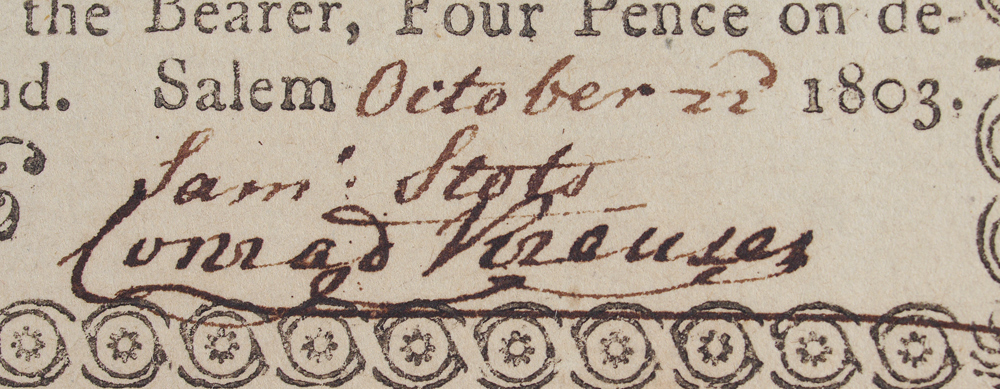 the Bearer, Four Pence on de-
nd. Salem October 22d 1803.
Sam. Stots
Conrad Kreuser